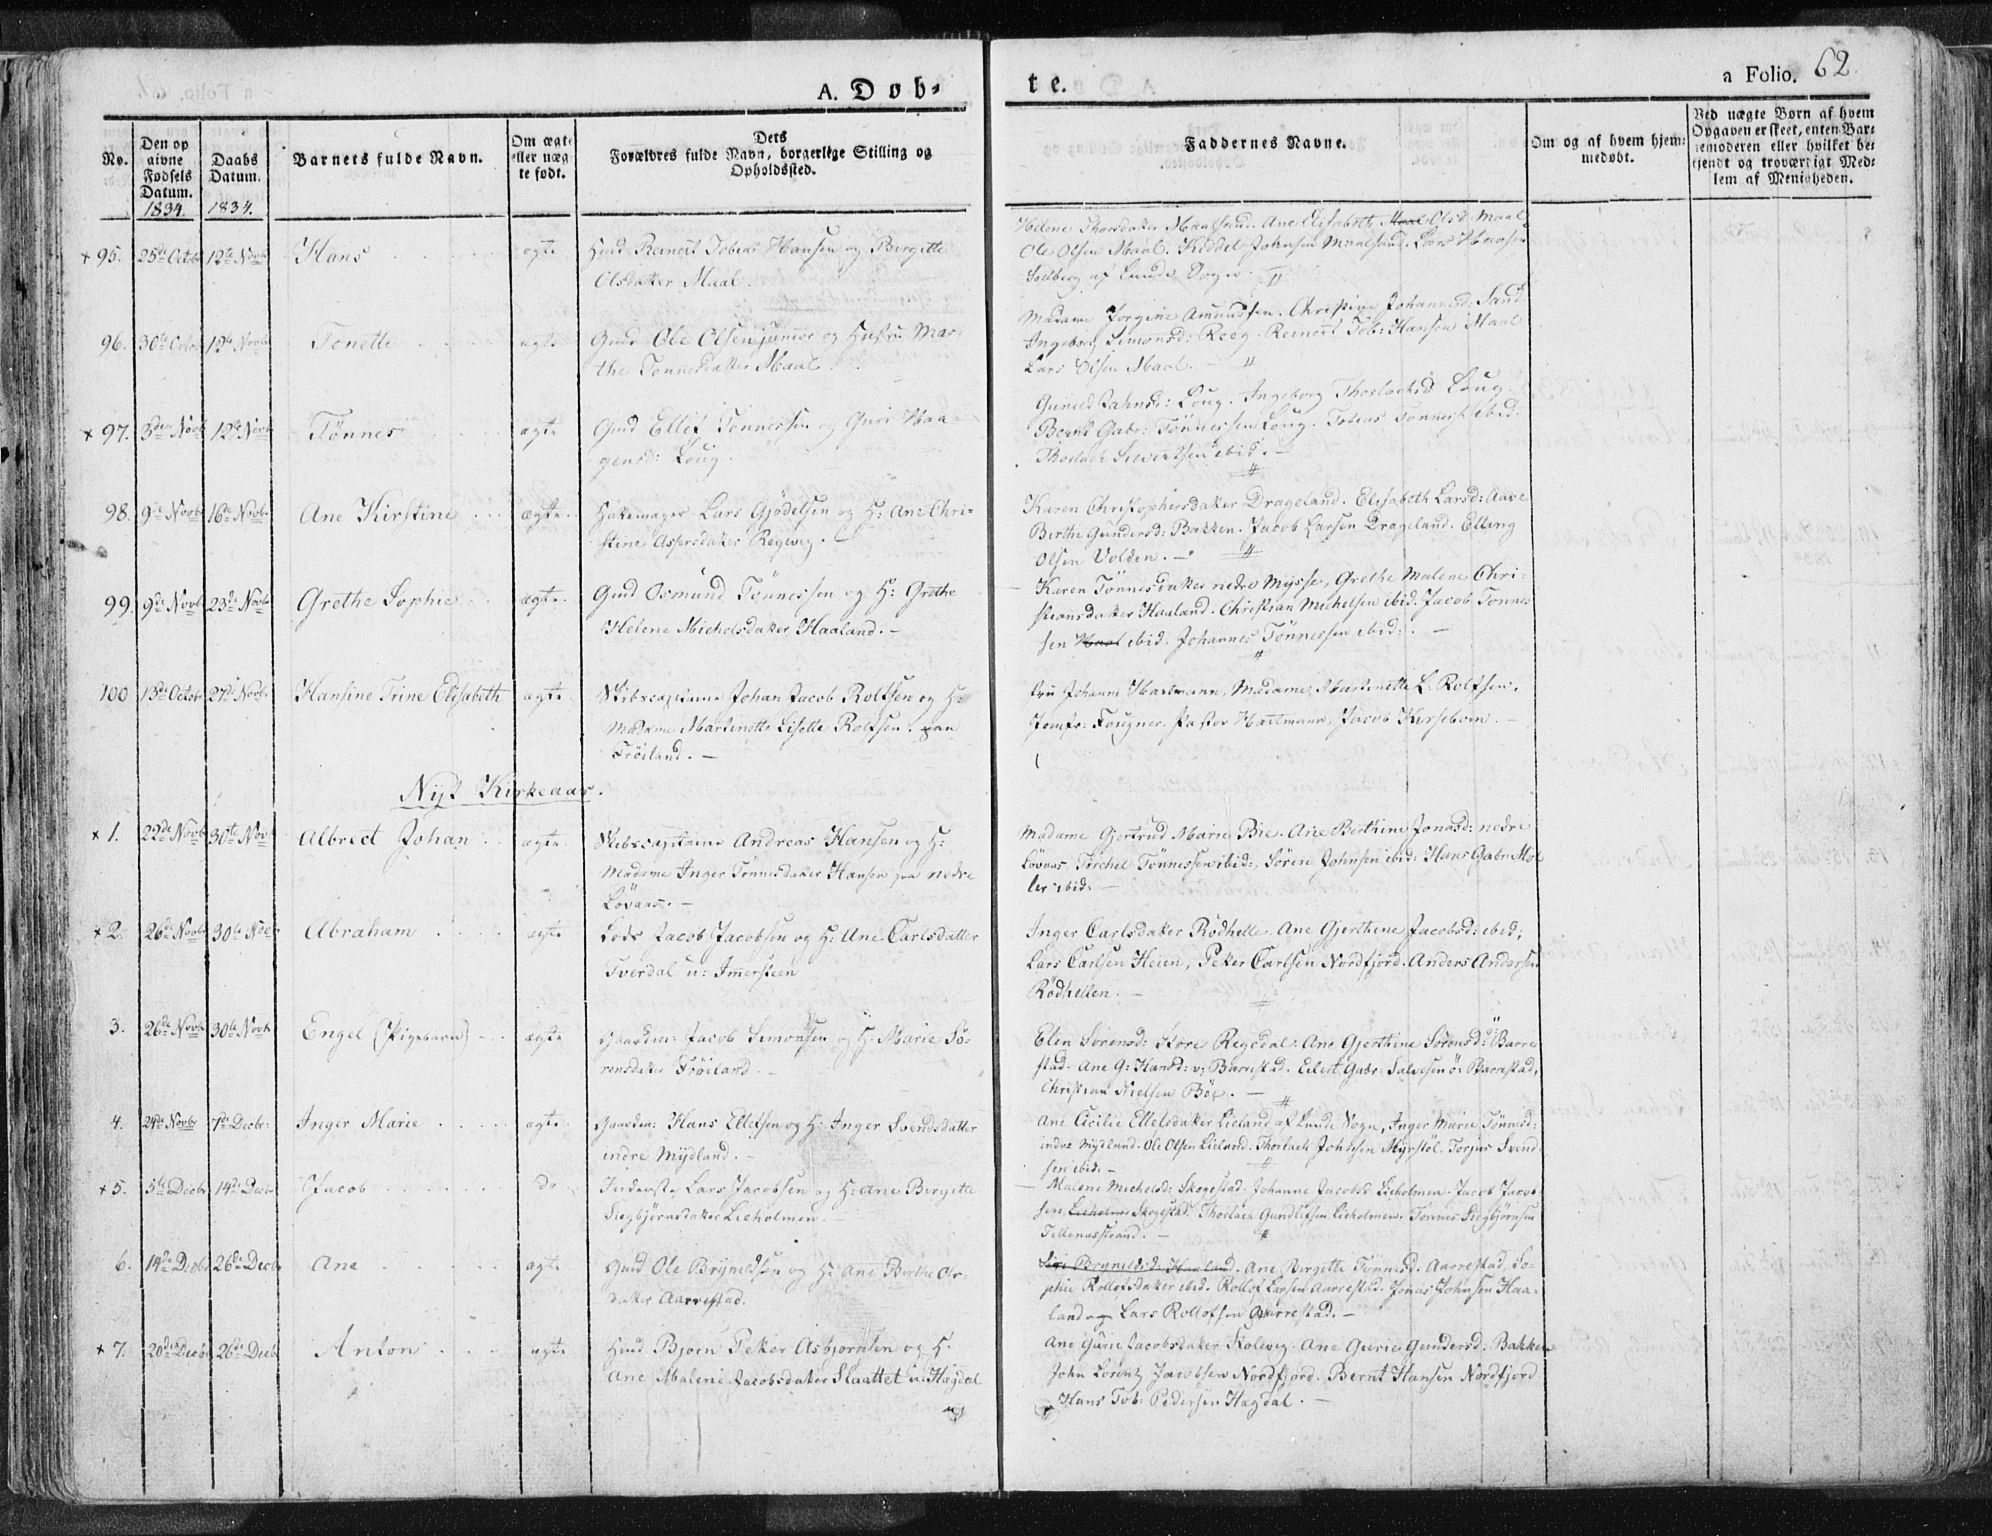 A. Döb-
te.
a Folio. 62
No.
Den op
givne
Fødsels
Datum.
1834.
Daabs
Datum.
1834.
Barnets fulde Navn.
Om ægte
eller uæg
te født.
Dets
Forældres fulde Navn, borgerlige Stilling og
Opholdssted.
Faddernes Navne.
Om og af hvem hjem-
medøbt.
Ved uægte Børn af hvem
Opgaven er skeet, enten Bar-
nemoderen eller hvilket be-
kjendt og troværdigt Med-
lem af Menigheden.
+ 95. 25de Octobr 12te Novbr Hans ægte Huusmd Reinert Tobias Hansen og Birgitte
Olsdatter Maal.
Helene Thorsdatter Maalsund. Ane Elisabeth Maal Olsd. Maal
Ole Olsen Maal. Kiddel Johnsen Maalsund. Lars Hansen
Solberg af Lunde Sogn.
96. 30te Octobr 12te Novbr Tonette ægte Gmd Ole Olsen junior og Hustru Mar-
the Tonnesdatter Maal
Madame Jorgine Amundsen. Christine Johannesd: Sand-
Ingeborg Simonsd: Reeg. Reinert Tob: Hansen Maal
Lars Olsen Maal.
+ 97. 3den Novbr 12te Novbr Tönnes ægte Gmd Ellef Tönnessen og Guri Haa-
gensd: Loug.
Gunild Jahnsd: Loug. Ingeborg Thorlachsd Loug.
Bernt Gabr: Tönnessen Loug. Tobias Tonness. ibid.
Thorlach Sivertsen ibid.
98. 9de Novbr 16de Novbr Ane Kirstine ægte Hattemager Lars Gjödelsen og H: Ane Chri-
stine Assersdatter Regevig.
Karen Christophersdatter Drageland. Elisabeth Larsd: Aave
Birthe Gundersd: Bakken. Jacob Larsen Drageland. Elling
Olsen Volden.
99. 9de Novbr 23de Novbr Grethe Sophie ægte Gmd Osmund Tönnessen og H: Grethe
Helene Michelsdatter Haaland.
Karen Tönnesdatter nedre Mysse, Grethe Malene Chri-
stiansdatter Haaland. Christian Michelsen ibid. Jacob Tonnes
sen Haal ibid. Johannes Tönnessen ibid:
100 13de Octobr 27de Novbr Hansine Trine Elisabeth ægte Skibscaptaine Johan Jacob Rolfsen og H:
Madame Martinette Lisette Rolfsen paa
Fröiland.
Fru Johanne Hartmann, Madame Martinette L. Rolfsen,
Jomfr: Fougner. Pastor Hartmann, Jacob Kirsebom.
Nyt Kirkeaar.
+ 1. 22de Novbr 30te Nov Albrect Johan ægte Skibscaptaine Andreas Hansen og H:
Madame Inger Tönnesdatter Hansen paa nedre
Lövaas.
Madame Gjertrud Marie Bie. Ane Berthine Jonasd: nedre
Lövaas, Torchel Tönnessen ibid:, Sören Johnsen ibid: Hans Gabr: Möl
ler ibid:
+ 2. 26de Novbr 30te Novbr Abraham ægte Lods Jacob Jacobsen og H: Ane Carlsdatter
Tverdal u: Imersteen
Inger Carlsdatter Rödhelle. Ane Gjerthine Jacobsd: ibid;
Lars Carlsen Heien, Peter Carlsen Nordfjord. Anders Andersen
Rödhellen.
3. 26de Novbr 30te Novbr Engel (Pigebarn) ægte Gaardm: Jacob Simonsen og H: Marie Sö-
rensdatter Fröiland.
Elen Sörensd: Store Regedal. Ane Gjerthine Sörensd: ö: Barre
stad. Ane G: Hansd: v: Barrestad. Eilert Gabr: Salvesen ö: Barrestad,
Christian Nielsen Böe.
4. 24de Novbr 7de Decbr: Inger Marie ægte Gaardm: Hans Ellefsen og H: Inger Svendsdatter
indre Mydland.
Ane Cicilie Ellefsdatter Lieland af Lunde Sogn, Inger Marie Tönnesd:
indre Mydland. Ole Olsen Lieland. Thorlach Johnsen Myrstöl. Torjus Svend
sen ibid.
+ 5. 5te Decbr 14de Decbr Jacob do Inderst Lars Jacobsen og H: Ane Birgitte
Siegbjörnsdatter Lieholmen.
Malene Michelsd: Skogestad. Johanne Jacobsd Lieholmen. Jacob Jacob
sen Lieholmen Skogestad. Thorlach Gundlefsen Lieholmen. Tönnes Siegbjörnsen
Tellenesstrand.
6. 14de Decbr 26de Decbr Ane ægte Gmd Ole Brynildsen og H: Ane Birthe Ols
datter Aarrestad.
Siri Brynildsd: Haaland. Ane Birgitte Tönnesd. Aarrestad, So-
phie Rollofsdatter ibid. Rollof Larsen Aarrestad. Jonas Johnsen Haa-
land og Lars Rollofsen Aarrestad.
+ 7. 20de Decbr 26de Decbr Anton ægte Huusmd Bjorn Peter Asbjornsen og H:
Ane Malene Jacobsdatter Slaattet u: Hagdal
Ane Gurie Jacobsdatter Stolevig. Ane Gurie Gundersd. Bakken
John Lorentz Jacobsen Nordfjord. Bernt Hansen Nordfjord
Hans Tob: Pedersen Hagdal.